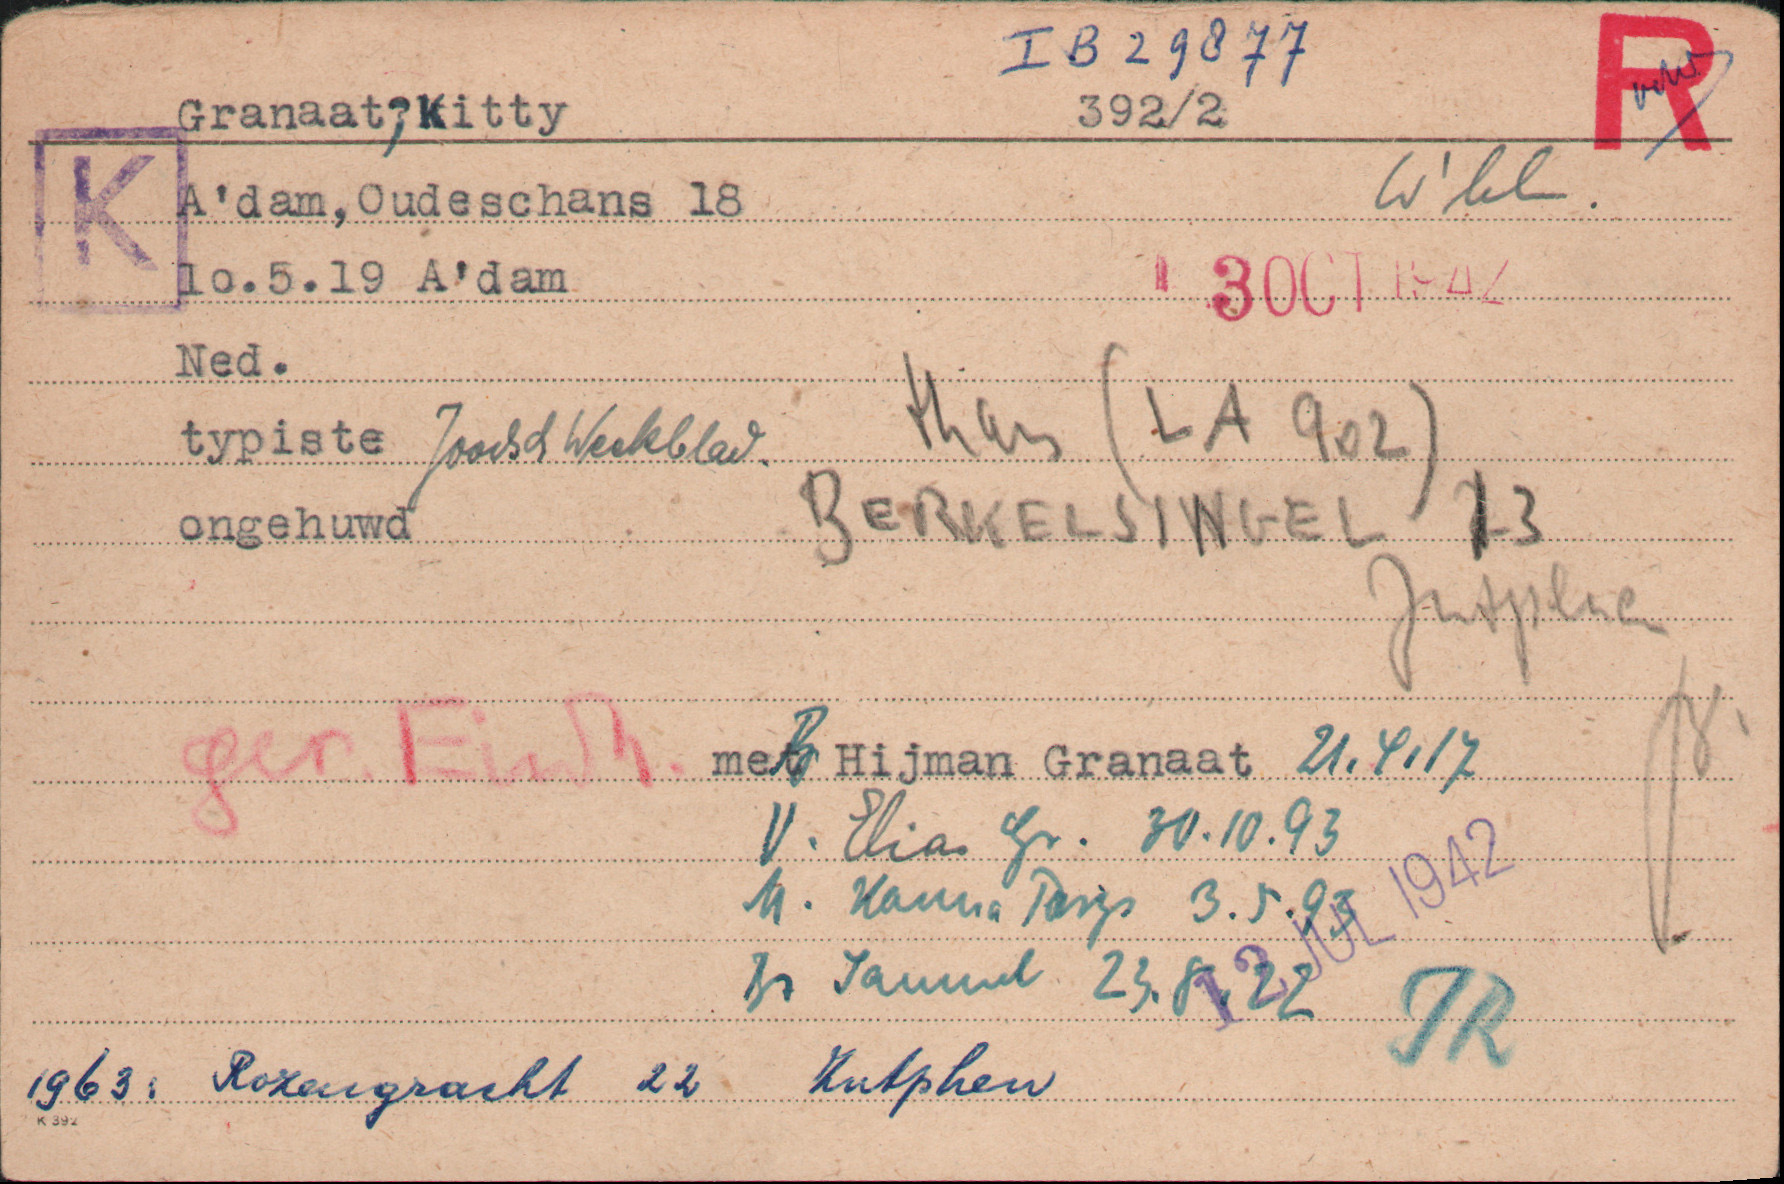 I B 29877
R
Granaat, Kitty 392/2
K
A'dam, Oudeschans 18
W'bh.
1o.5.19 A'dam
3 OCT 1942
Ned.
typiste Joodsch Weekblad.
thans (LA 902)
ongehuwd BERKELSINGEL 13
Zutphen
ger. Eindh. met Br Hijman Granaat 21.4.17
V. Elias Gr. 30.10.93
M. Hanna 3.5.93
12 JUL 1942
Br Samuel 23.8.22
TR
1963: Rozengracht 22 Zutphen
K 392